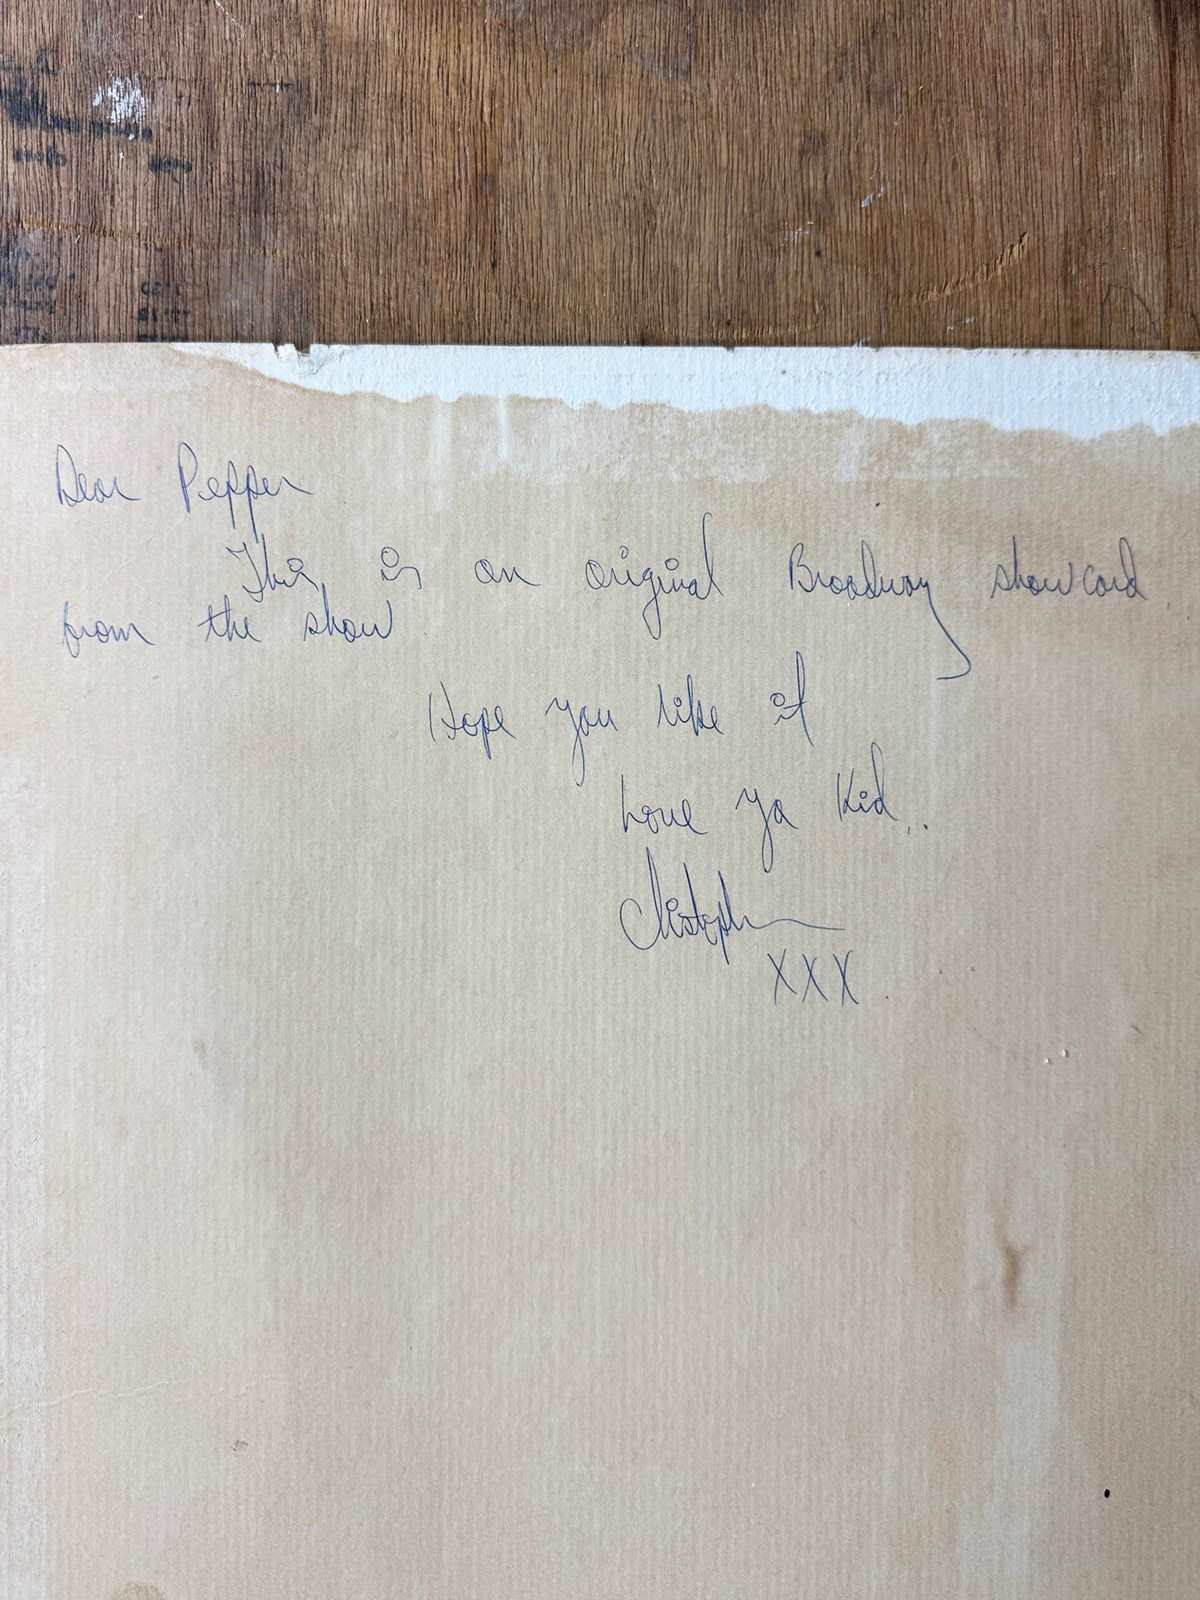 Dear Pepper
This is an original Broadway showcard
from the show
Hope you like it
Love ya Kid..
Christopher
XXX